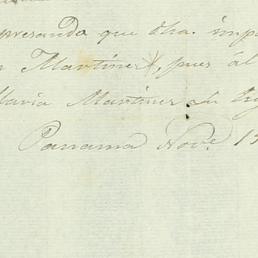 presando que dha. imp
n Martinez, pues ál
Maria Martinez
Panama Nov.e 15